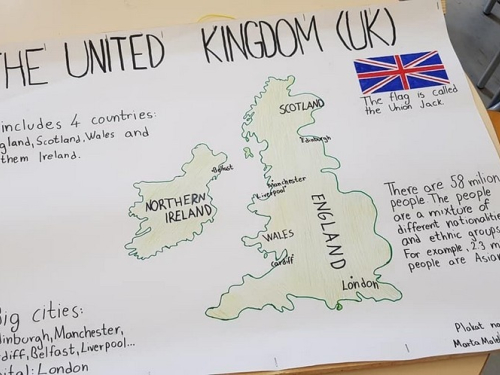 THE UNITED KINGDOM (UK)
includes 4 countries:
gland, Scotland, Wales and
thern Ireland.
SCOTLAND
Edinburgh
Belfast
Manchester
Liverpool
NORTHERN
IRELAND
ENGLAND
WALES
Cardiff
London
The flag is called
the Union Jack.
There are 58 milion
people. The people
are a mixture of
different nationalitie
and ethnic groups
For example, 2,3 m
people are Asian
Big cities:
dinburgh, Manchester,
diff, Belfast, Liverpool...
pital: London
Plakat na
Marta